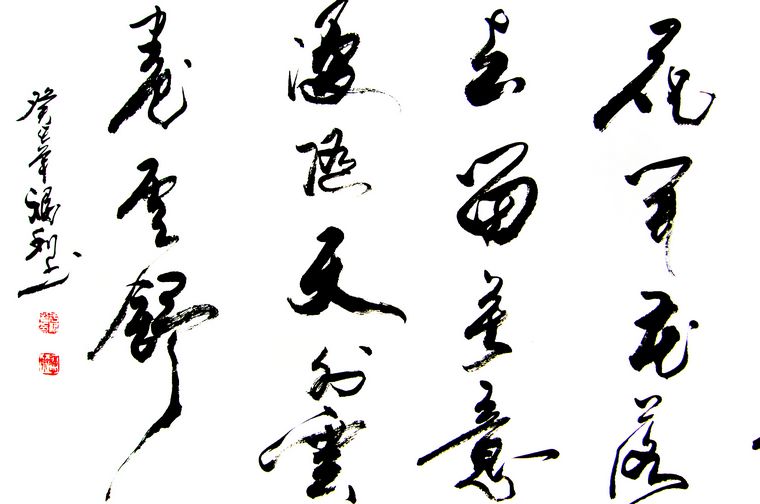 花開花落
去留無意
漫隨天外雲
卷雲舒
癸巳年